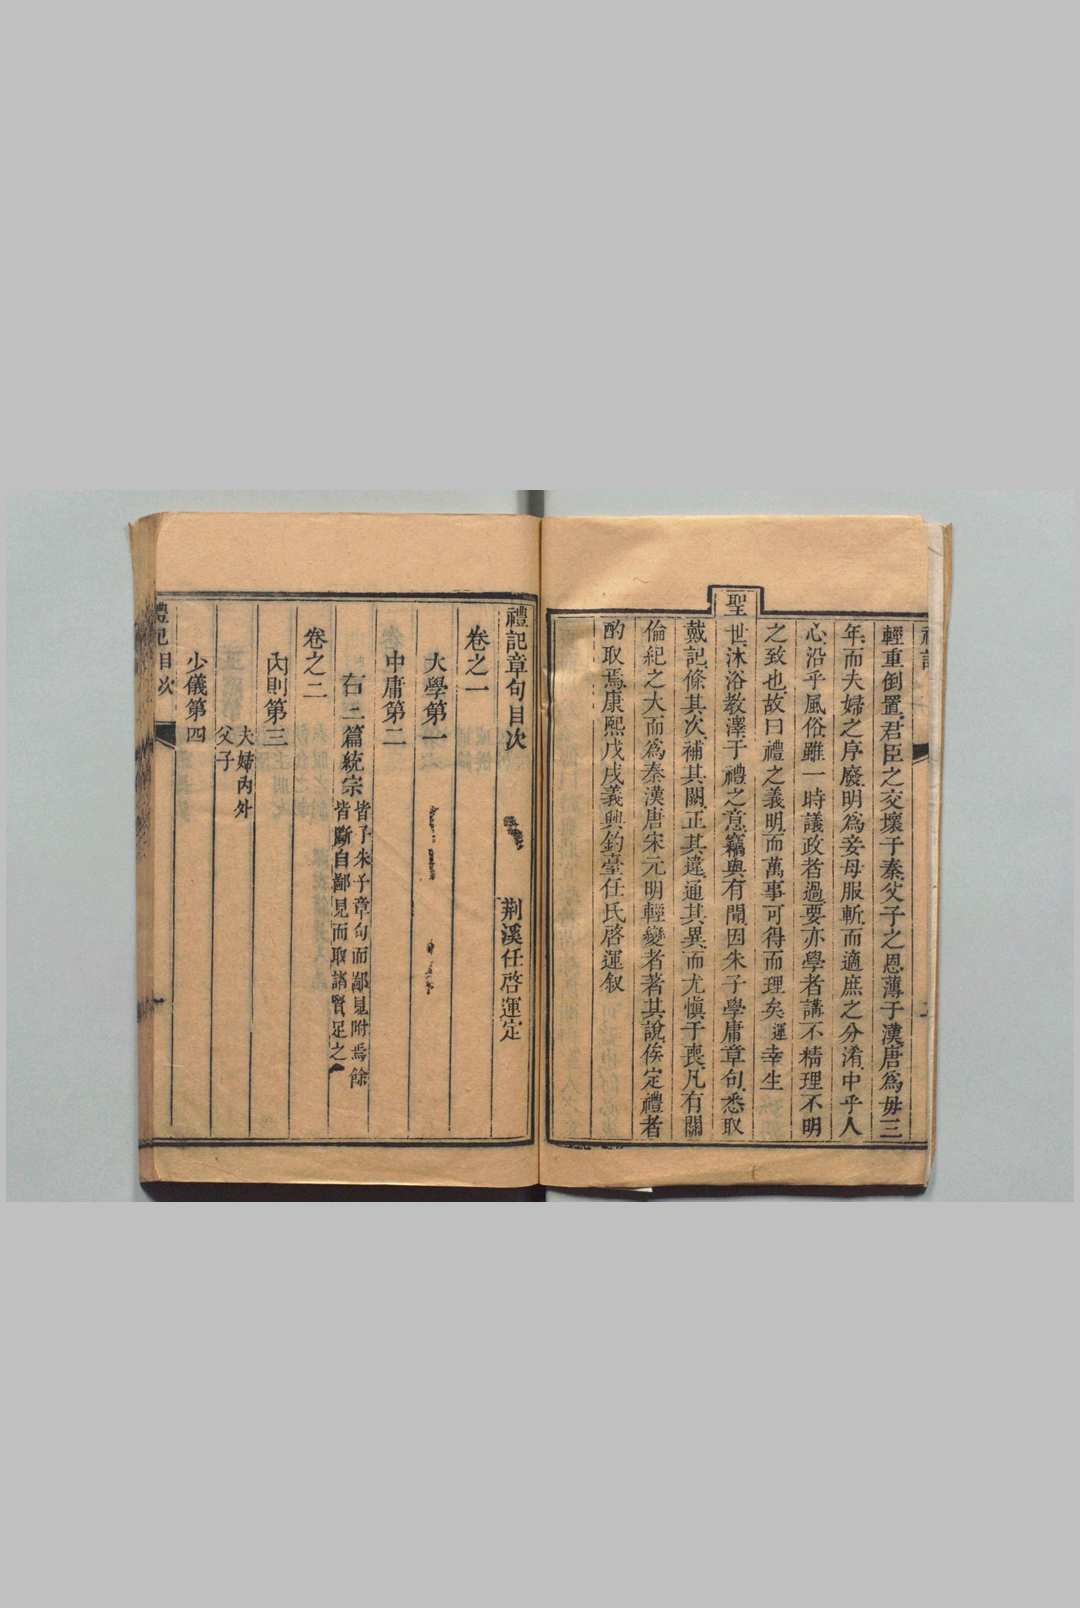 輕重倒置君臣之交壞于秦父子之恩薄于漢唐爲毋三
年而夫婦之序廢明爲妾母服斬而適庶之分淆中乎人
心沿乎風俗雖一時議政者過要亦學者講不精理不明
之致也故曰禮之義明而萬事可得而理矣運幸生
聖
世沐浴教澤于禮之意竊與有聞因朱子學庸章句悉取
戴記條其次補其闕正其違通其異而尤慎于喪凡有關
倫紀之大而爲秦漢唐宋元明輕變者著其說俟定禮者
酌取焉康熙戊戌義興釣臺任氏啓運叙
禮記章句目次
荆溪任啓運定
卷之一
大學第一
中庸第二
右二篇統宗
皆子朱子章句而鄙見附焉餘
皆斷自鄙見而取諸賢足之
卷之二
內則第三
夫婦內外
父子
少儀第四
禮記目次